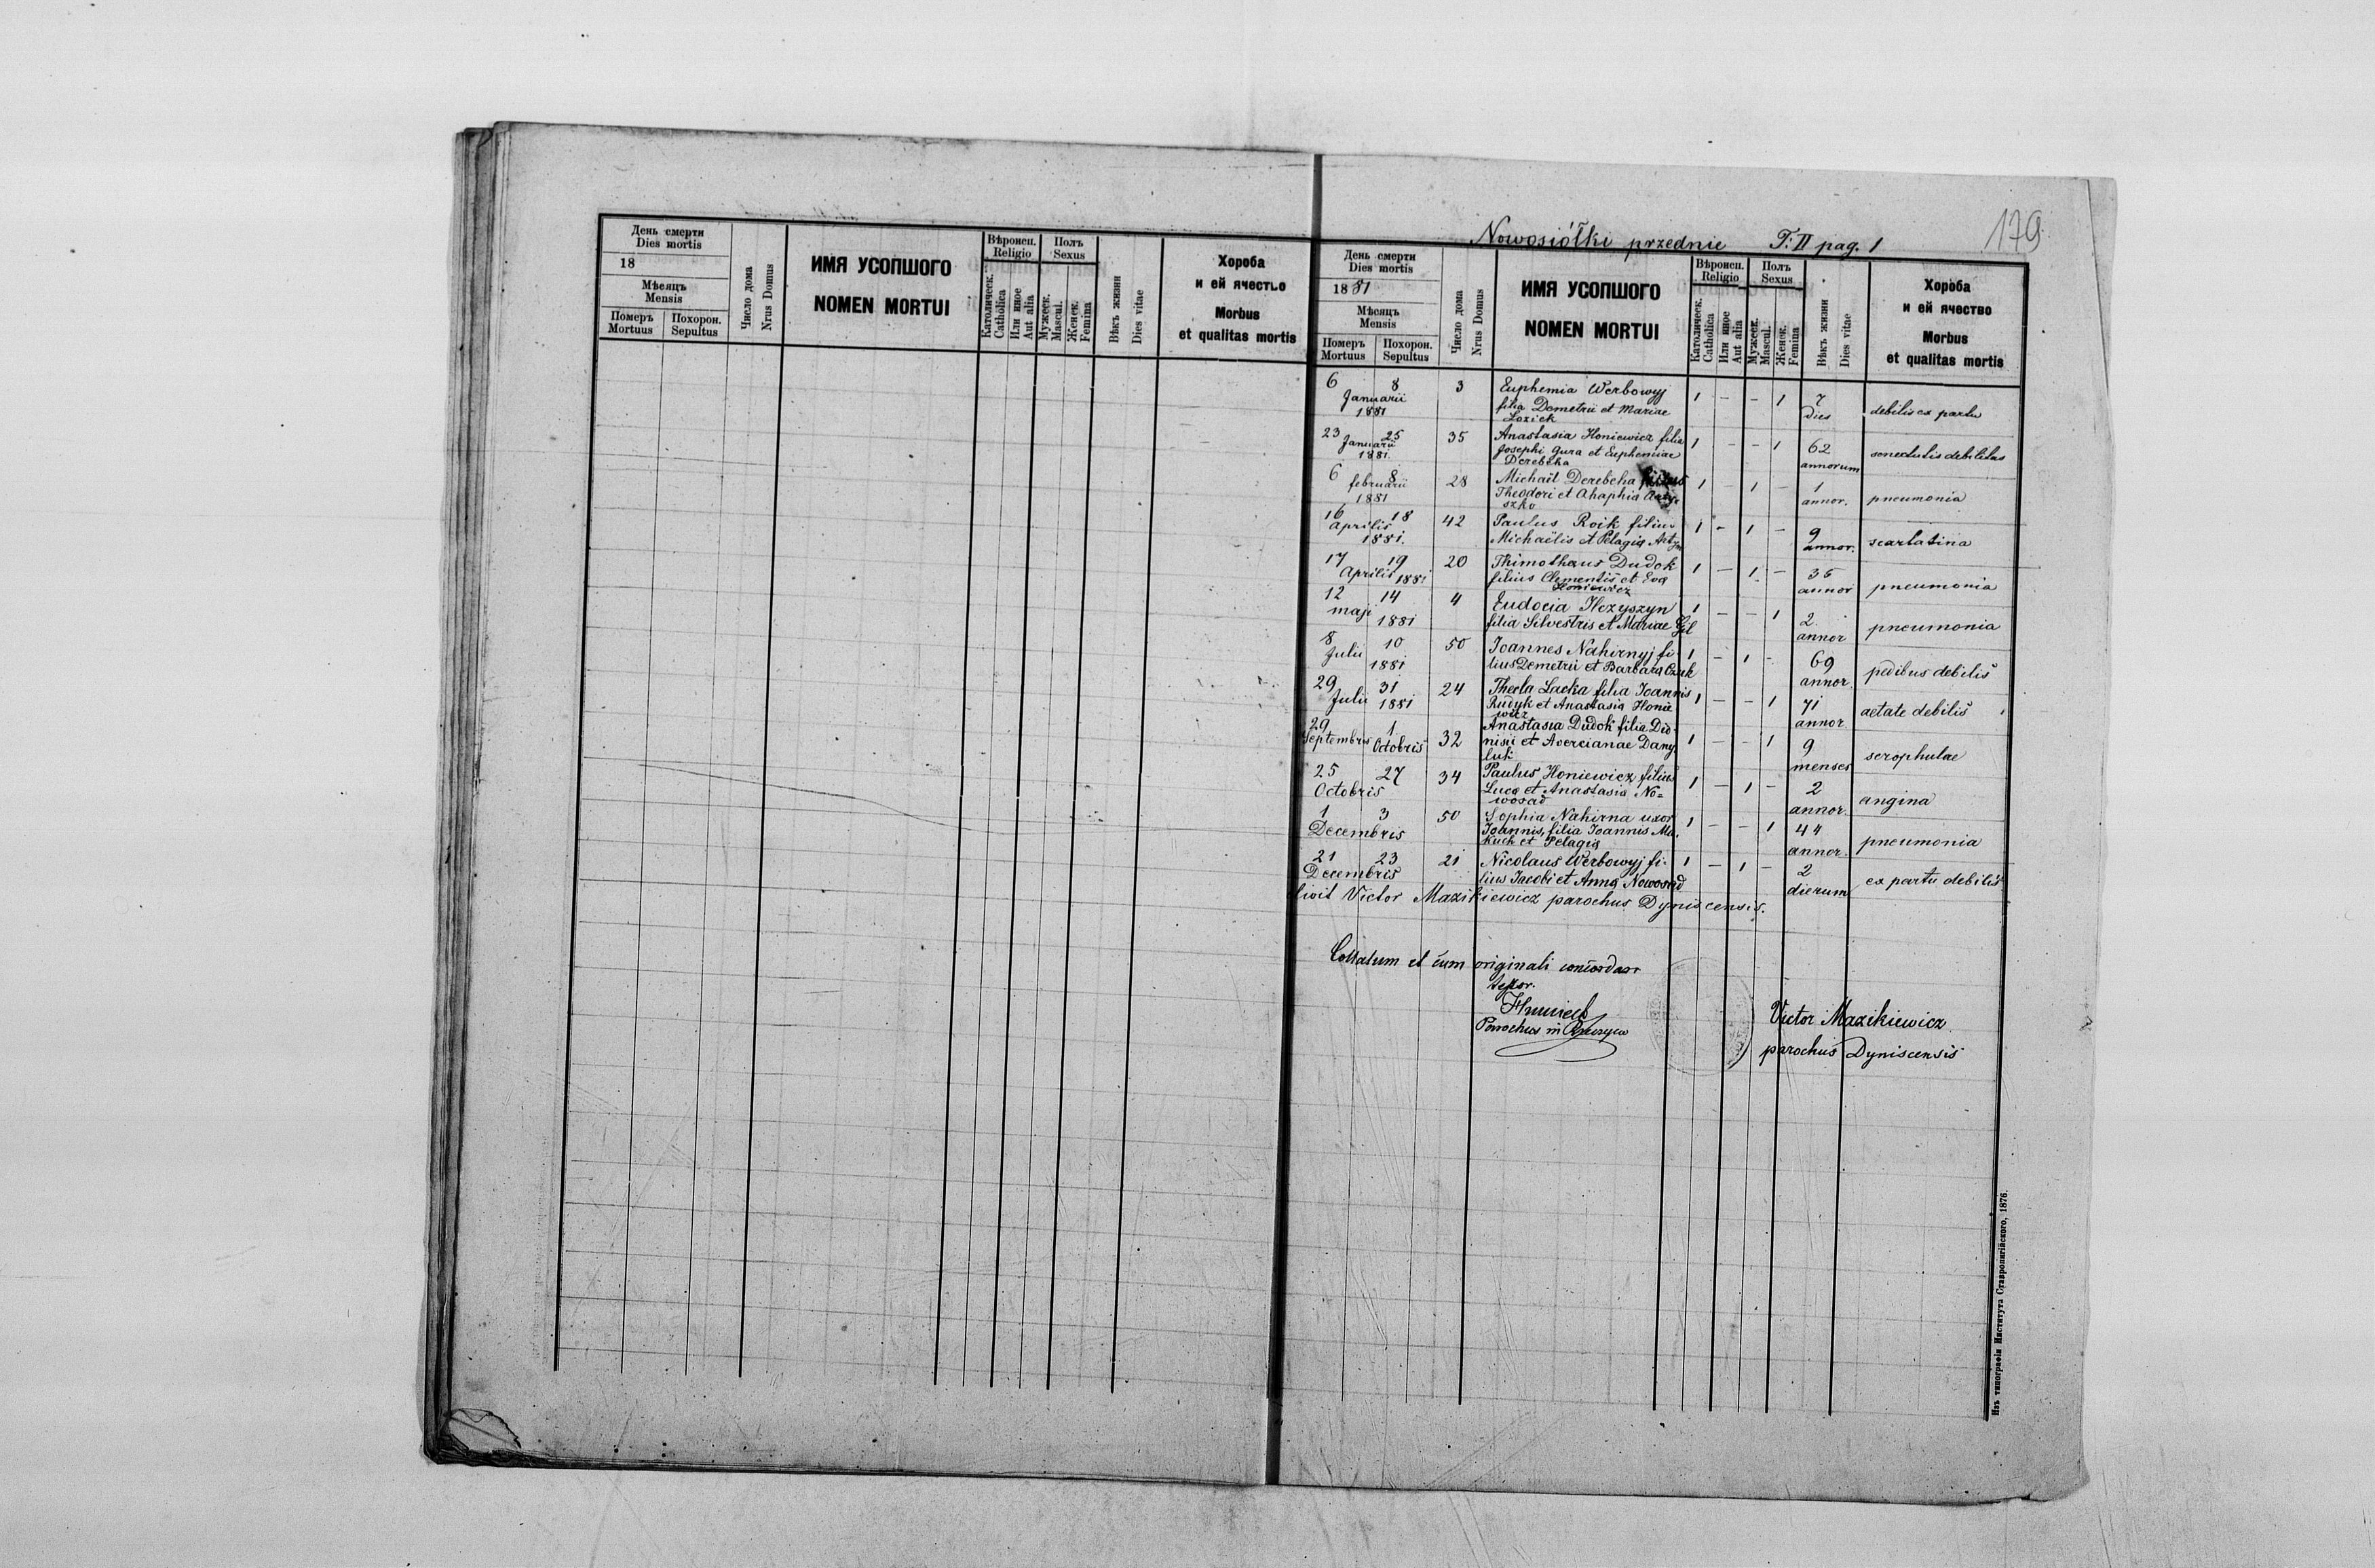 День смерти
Dies mortis
18
Мѣсяцъ
Mensis
Померъ
Mortuus
Похорон.
Sepultus
Число дома
Nrus Domus
ИМЯ УСОПШОГО
NOMEN MORTUI
Вѣроисп.
Religio
Католическ.
Catholica
Или иное
Aut alia
Полъ
Sexus
Мужеск.
Mascul.
Женск.
Femina
Вѣкъ жизни
Dies vitae
Хороба
и ей ячество
Morbus
et qualitas mortis
Nowosiółki przednie T: II pag. 1
179
День смерти
Dies mortis
1881
Мѣсяцъ
Mensis
Померъ
Mortuus
Похорон.
Sepultus
Число дома
Nrus Domus
ИМЯ УСОПШОГО
NOMEN MORTUI
Вѣроисп.
Religio
Католическ.
Catholica
Или иное
Aut alia
Полъ
Sexus
Мужеск.
Mascul.
Женск.
Femina
Вѣкъ жизни
Dies vitae
Хороба
и ей ячество
Morbus
et qualitas mortis
6 8 3 Euphemia Werbowyj 1 - - 1 7
Januarii filia Demetrii et Mariae dies debilis ex partu
1881 Lozick
23 25 35 Anastasia Honiewicz filia 1 - - 1 62
Januarii Josephi Gura et Euphemiae annorum senectutis debilitas
1881. Derebcha
6 8 28 Michaël Derebcha filius 1 - 1 - 1
februarii Theodori et Ahaphia annor. pneumonia
1881 szko
16 18 42 Paulus Roik filius 1 - 1 - 9
Aprilis Michaëlis et Pelagia annor. scarlatina
1881.
17 19 20 Thimotheus Dudok 1 - 1. - 35
Aprilis 1881 filius Clementis et Eva annor pneumonia
Honiewicz
12 14 4 Eudocia Hczyszyn 1 - - 1 2.
maji 1881 filia Silvestris et Mariae Gil annor pneumonia
8 10 50 Joannes Nahirnyj fi- 1 - 1 - 69
Julii 1881 lius Demetrii et Barbara annor. pedibus debilis
29 31 24 Thecla Lacka filia Joannis 1 - - 1 71
Julii 1881 Rudyk et Anastasia Honie annor aetate debilis
wicz
29 1 32 Anastasia Dudok filia Dio- 1 - - 1 9
Septembris Octobris nisii et Avercianae Dany menses scrophulae
luk
25 27 34 Paulus Honiewicz filius 1 - 1 - 2
Octobris Luca et Anastasia No= annor. angina
wosad
1 3 50 Sophia Nahirna uxor 1 - - 1 44
Decembris Joannis, filia Joannis Ma- annor. pneumonia
kuch et Pelagia
21 23 21 Nicolaus Werbowyj fi- 1 - 1 - 2
Decembris lius Jacobi et Anna Nowosad dierum ex partu debilis
Victor Mazikiewicz parochus Dyniscensis.
Collatum et cum originali concordare
testor.
Parochus in
Victor Mazikiewicz
parochus Dyniscensis
Изъ типографіи Института Ставропигійского, 1876.